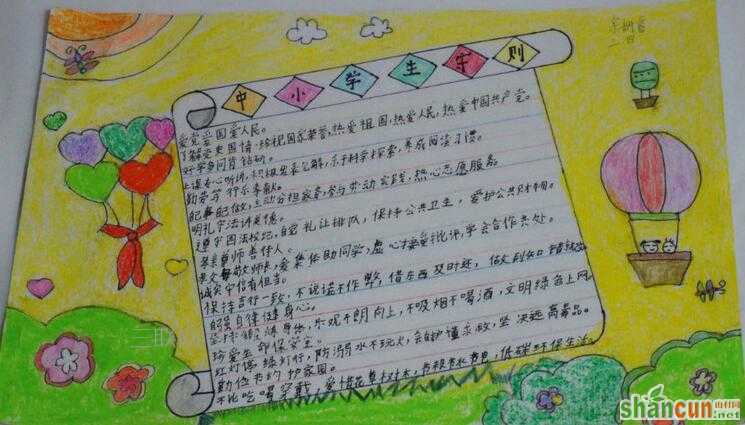 中小学生守则
爱党爱国爱人民。
了解党史国情，珍视国家荣誉，热爱祖国，热爱人民，热爱中国共产党。
好学多问肯钻研。
上课专心听讲，积极发表见解，乐于科学探索，养成阅读习惯。
勤劳笃行乐奉献。
自己事自己做，主动分担家务，参与劳动实践，热心志愿服务。
明礼守法讲美德。
遵守国法校纪，自觉礼让排队，保持公共卫生，爱护公共财物。
孝亲尊师善待人。
孝父母敬师长，爱集体助同学，虚心接受批评，学会合作共处。
诚实守信有担当。
保持言行一致，不说谎不作弊，借东西及时还，做到知错就改。
自强自律健身心。
坚持锻炼身体，乐观开朗向上，不吸烟不喝酒，文明绿色上网。
珍爱生命保安全。
红灯停绿灯行，防溺水不玩火，会自护懂求救，坚决远离毒品。
勤俭节约护家园。
不比吃喝穿戴，爱惜花草树木，节粮节水节电，低碳环保生活。
shancun
山村网
.net